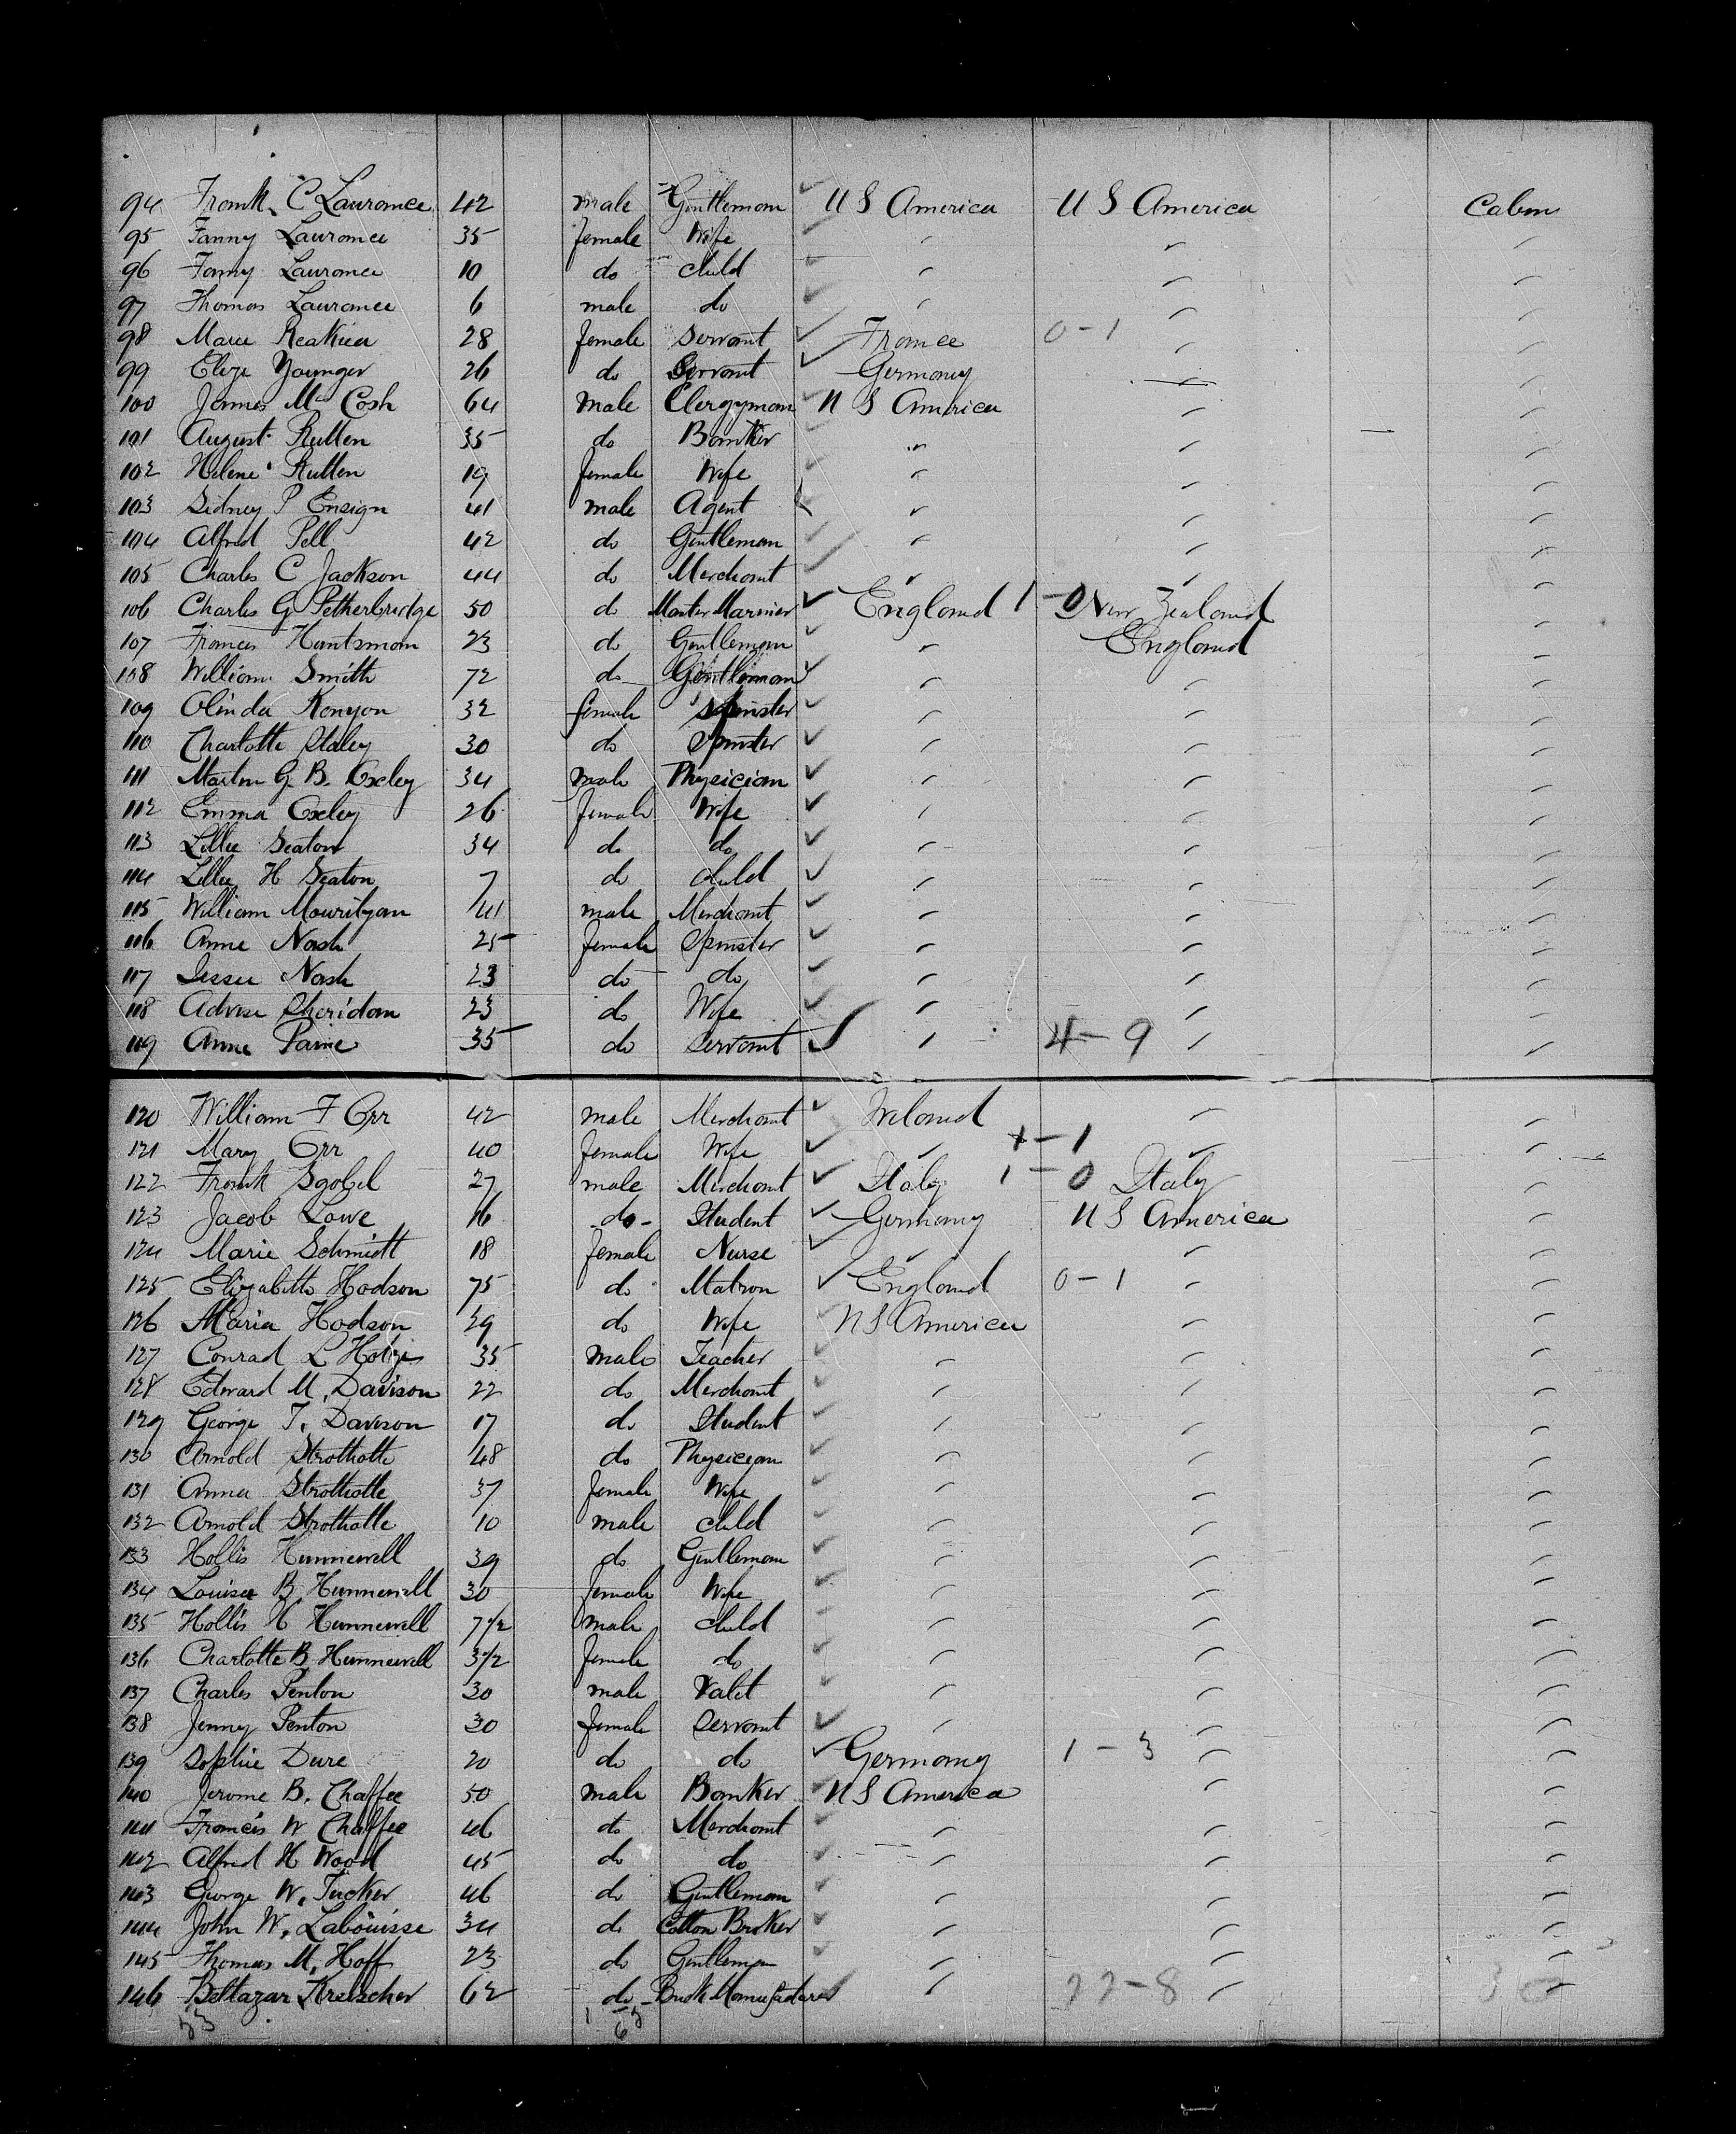 94 Frank C Laurance 42 male Gentleman U S America U S America Cabin
95 Fanny Laurance 35 female Wife " " "
96 Fanny Laurance 10 do child " " "
97 Thomas Laurance 6 male do " " "
98 Marie 28 female Servant France 0-1 " "
99 Elize Younger 26 do Servant Germany " "
100 James Mc Cosh 64 male Clergyman U S America " "
101 August Rutten 35 do Banker " " "
102 Helene Rutten 19 female Wife " " "
103 Sidney P Ensign 41 male Agent " " "
104 Alfred Pell 42 do Gentleman " " "
105 Charles C Jackson 44 do Merchant " " "
106 Charles G Petherbridge 50 do Master Mariner England 1-0 New Zealand "
107 Frances Huntsman 23 do Gentleman " England "
108 William Smith 72 do Gentleman " " "
109 Olinda Kenyon 32 female Spinster " " "
110 Charlotte Staley 30 do Spinster " " "
111 Martin G. B. Oxley 34 male Physician " " "
112 Emma Oxley 26 female Wife " " "
113 Lillie Seaton 34 do do " " "
114 Lillie H Seaton 7 do child " " "
115 William Mourilyan 41 male Merchant " " "
116 Anne Nash 25 female Spinster " " "
117 Jessie Nash 23 do do " " "
118 Sheridan 23 do Wife " " "
119 Anne Paine 35 do Servant " 4-9 " "
120 William F Orr 42 male Merchant Ireland " "
121 Mary Orr 40 female Wife " 1-1 " "
122 Frank Sgobel 27 male Merchant Italy 1-0 Italy "
123 Jacob Lowe 16 do Student Germany U S America "
124 Marie Schmidt 18 female Nurse " " "
125 Elizabeth Hodson 75 do Matron England 0-1 " "
126 Maria Hodson 29 do Wife U S America " "
127 Conrad L 35 male Teacher " " "
128 Edward M. Davison 22 do Merchant " " "
129 George T. Davison 17 do Student " " "
130 Arnold Strothotte 48 do Physician " " "
131 Anna Strothotte 37 female Wife " " "
132 Arnold Strothotte 10 male child " " "
133 Hollis Hunnewell 39 do Gentleman " " "
134 Louisa B Hunnewell 30 female Wife " " "
135 Hollis H Hunnewell 7 1/2 male child " " "
136 Charlotte B Hunnewell 3 1/2 female do " " "
137 Charles Penton 30 male Valet " " "
138 Jenny Penton 30 female Servant " " "
139 Sophie Dure 20 do do Germany 1-3 " "
140 Jerome B. Chaffee 50 male Banker U S America " "
141 Francis W Chaffee 46 do Merchant " " "
142 Alfred H Wood 45 do do " " "
143 George W. Tucker 46 do Gentleman " " "
144 John W. Labouisse 34 do Cotton Broker " " "
145 Thomas M. Hoff 23 do Gentleman " " "
146 Beltazar Kreischer 62 do Brick Manufacturer " 22-8 " "
53